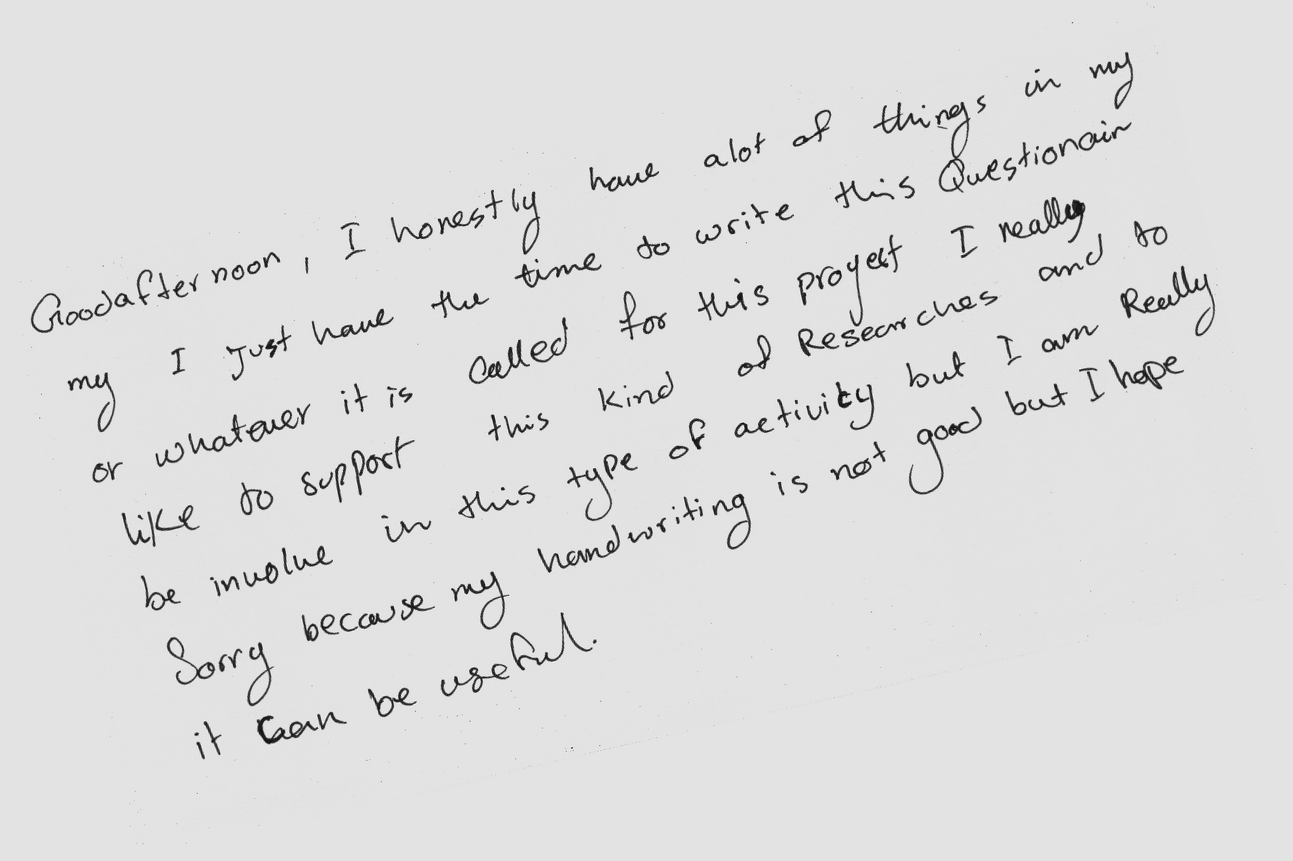 Goodafternoon, I honestly have alot of things in my
my I just have the time to write this Questionair
or whatever it is called for this proyect I really
like to support this kind of Researches and to
be involve in this type of activity but I am Really
Sorry because my handwriting is not good but I hope
it can be useful.